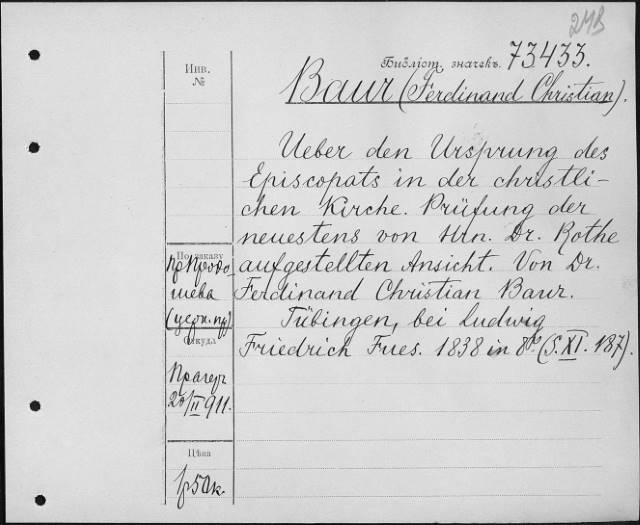 24В
Инв.
№
Библіот. значекъ. 73433.
Baur (Ferdinand Christian).
Ueber den Ursprung des
Episcopats in der christli-
chen Kirche. Prüfung der
neuestens von Hrn. Dr. Rothe
aufgestellten Ansicht. Von Dr.
Ferdinand Christian Baur.
Tübingen, bei Ludwig
Friedrich Fues. 1838 in 8º (S. XI. 187).
По заказу
(церк. пр)
Откуда
Прагеръ
/II 911.
Цѣна
1р50к.